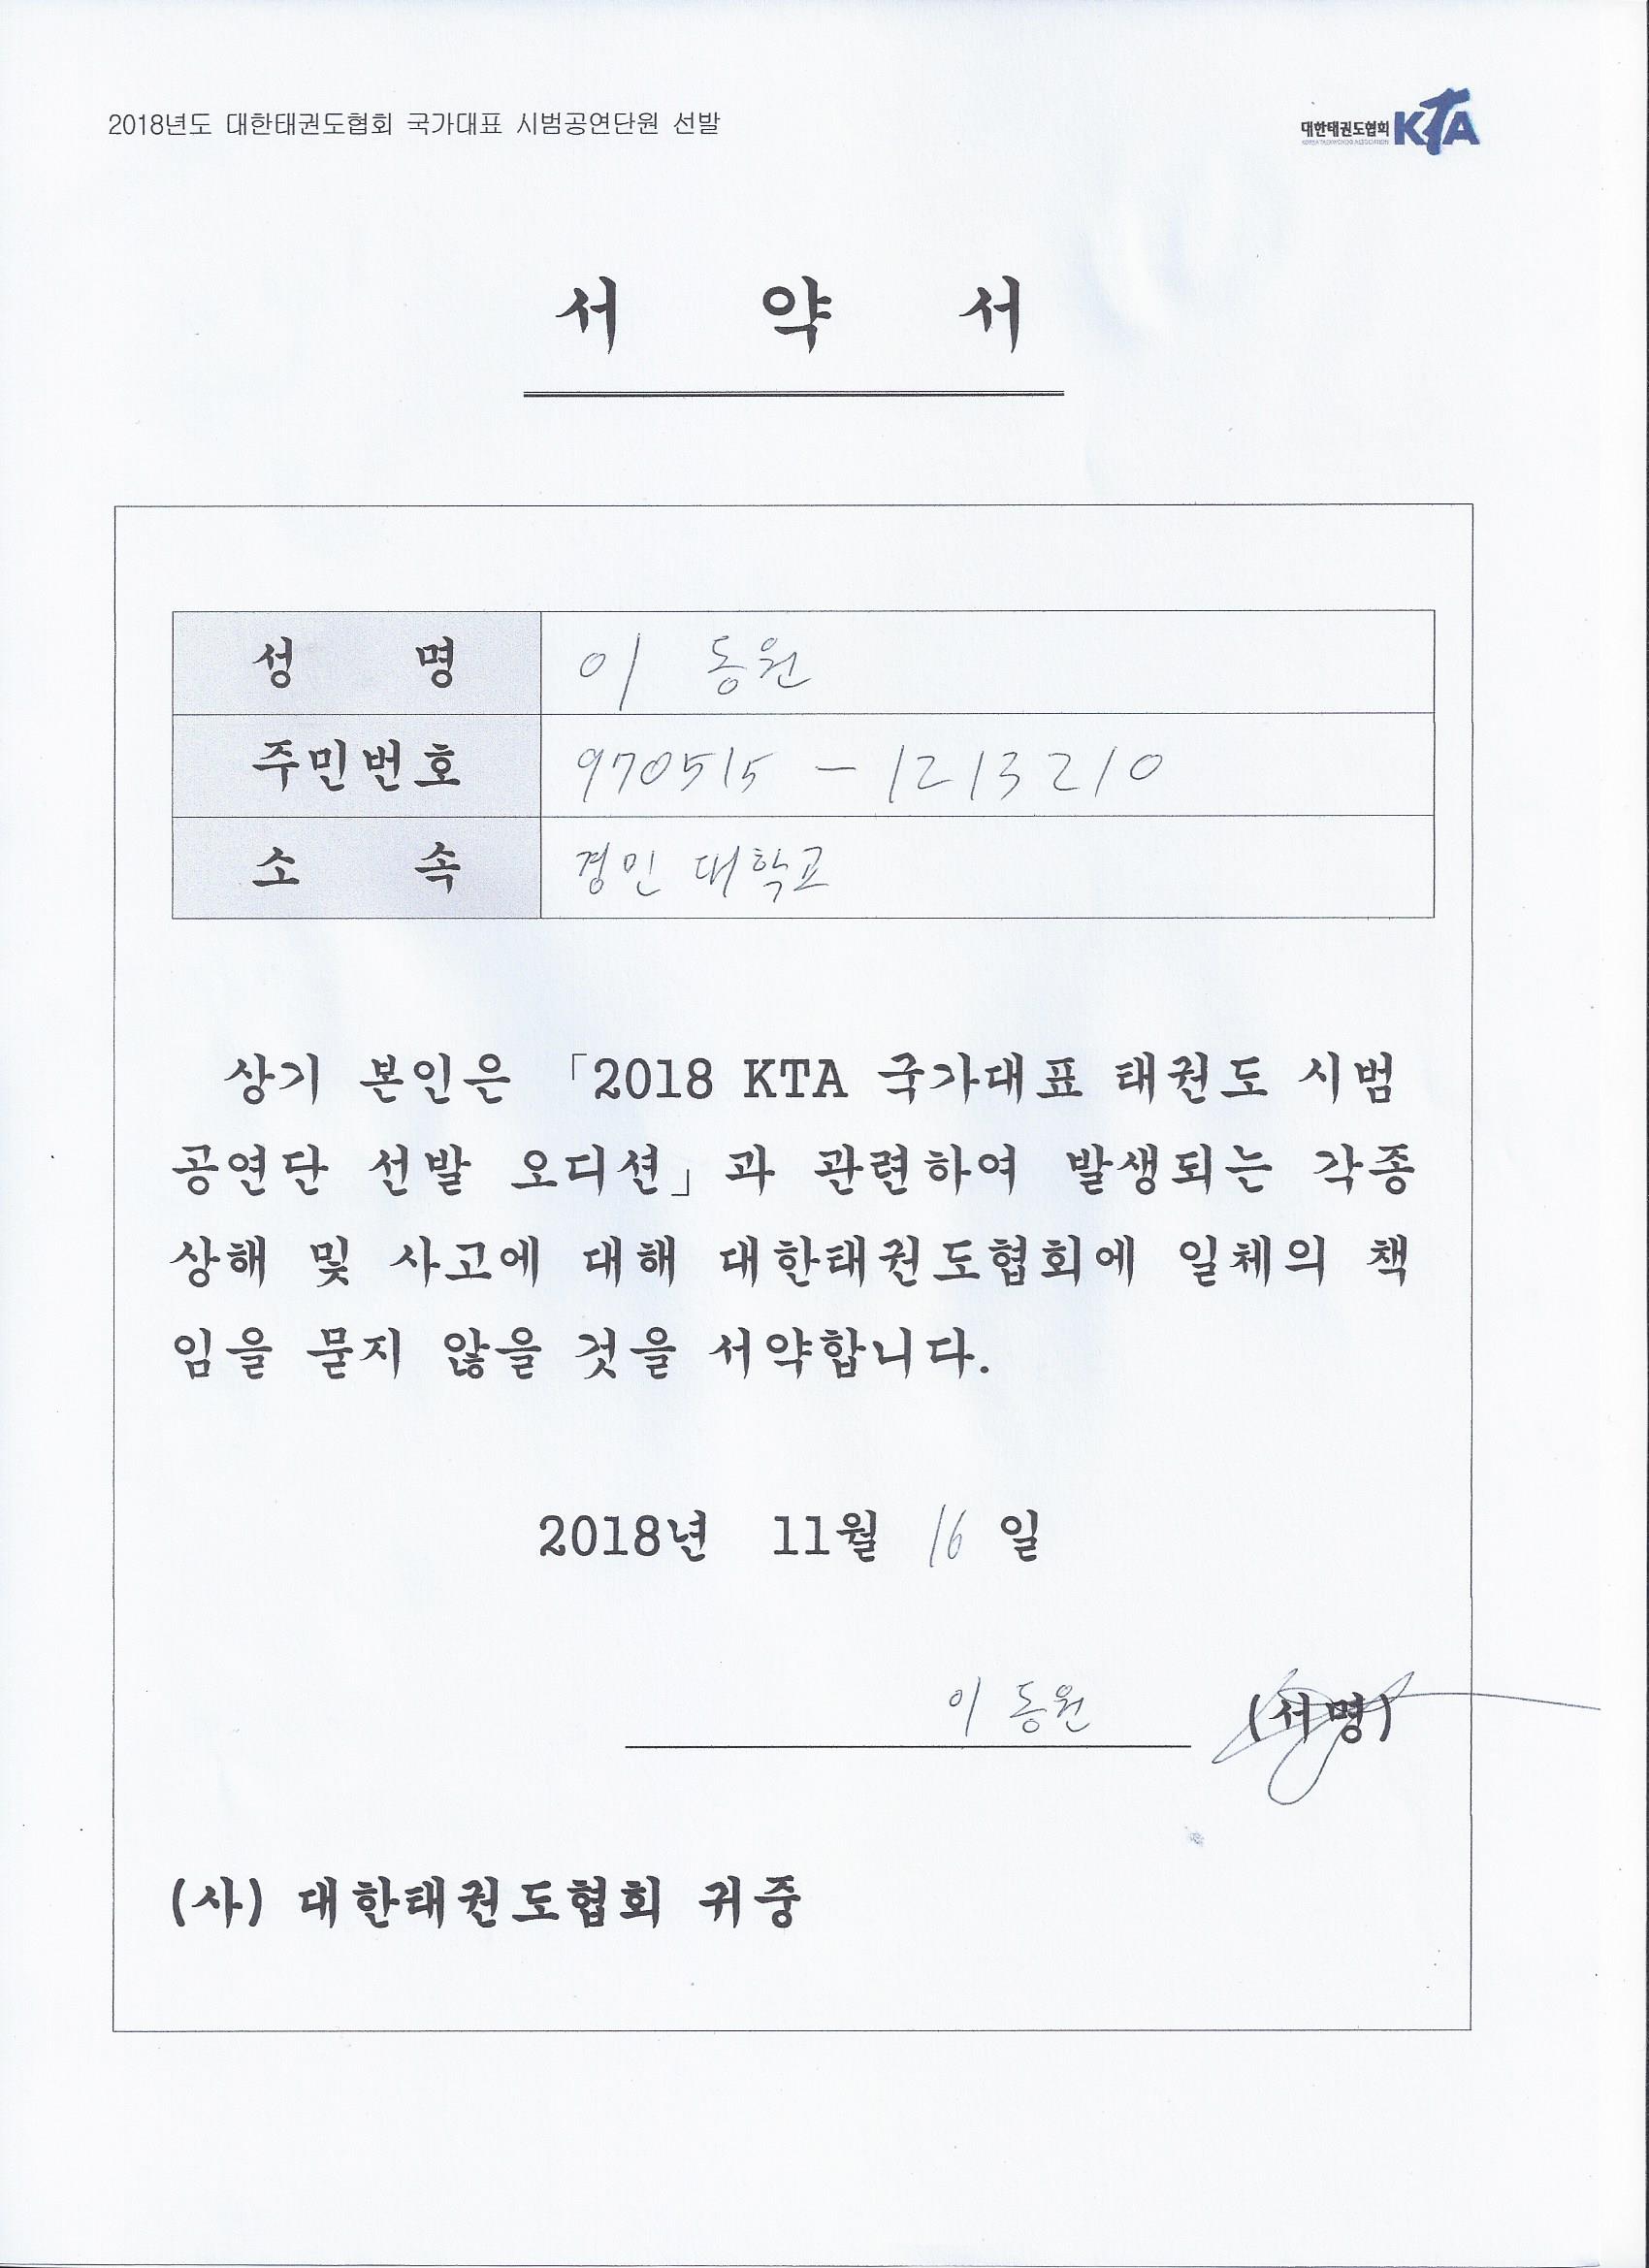 2018년도 대한태권도협회 국가대표 시범공연단원 선발
대한태권도협회 KTA
KOREA TAEKWONDO ASSOCIATION
서 약 서
성 명 이 동원
주민번호 970515 - 1213210
소 속 경민 대학교
상기 본인은 「2018 KTA 국가대표 태권도 시범
공연단 선발 오디션」과 관련하여 발생되는 각종
상해 및 사고에 대해 대한태권도협회에 일체의 책
임을 묻지 않을 것을 서약합니다.
2018년 11월 16 일
이 동원 (서명)
(사) 대한태권도협회 귀중